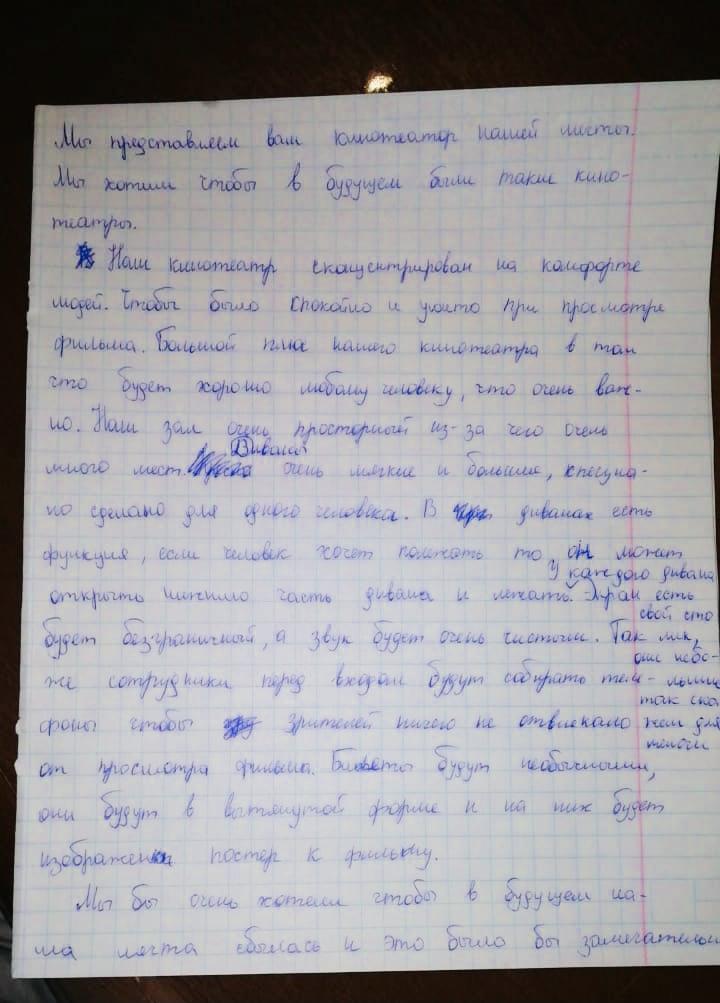 Мы представляем вам кинотеатор нашей мечты.
Мы хотим чтобы в будущем были такие кино-
театры.
Наш кинотеатр сконцентрирован на комфорте
людей. Чтобы было спокойно и уютно при просмотре
фильма. Большой плюс нашего кинотеатра в том
что будет хорошо любому человеку, что очень важ-
но. Наш зал очень просторный из-за чего очень
Диваны
много мест. очень мягкие и большие, специа-
но сделано для одного человека. В диванах есть
функция, если человек хочет полежать то он может
У каждого дивана
открыть нижнию часть дивана и лежать. Экран есть
свой сто
будет безграничный, а звук будет очень чистым. Так
они небо-
же сотрудники перед входом будут собирать теле-
льшие
так ска
фоны чтобы зрителей ничего не отвлекало
жем для
мелочи
от просмотра фильма. Билеты будут необычными,
они будут в вытянутой форме и на них будет
изображен постер к фильму.
Мы бы очень хотели чтобы в будущем на-
ша мечта сбылась и это было бы замечательн